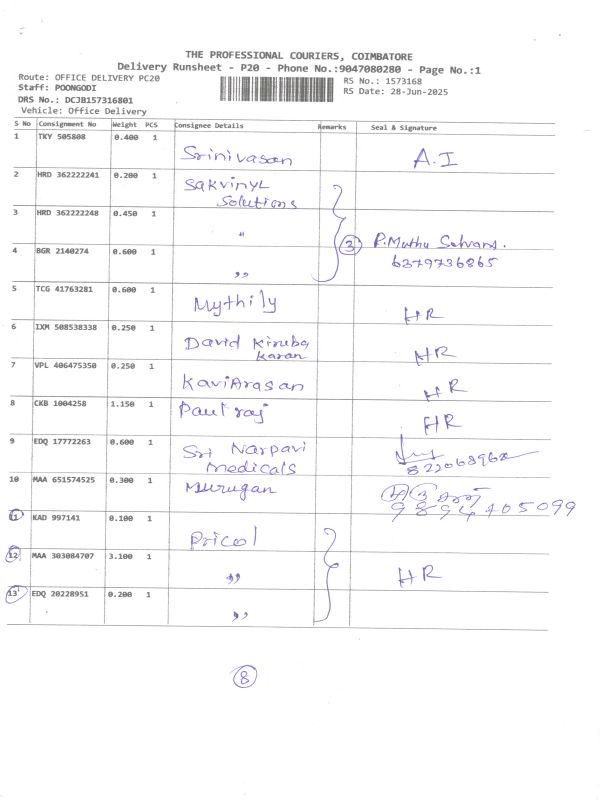 THE PROFESSIONAL COURIERS, COIMBATORE
Delivery Runsheet - P20 - Phone No.:9047080280 - Page No.:1
Route: OFFICE DELIVERY PC20
RS No.: 1573168
Staff: POONGODI
RS Date: 28-Jun-2025
DRS No.: DCJB157316801
Vehicle: Office Delivery
S No Consignment No Weight PCS Consignee Details Remarks Seal & Signature
1 TKY 505808 0.400 1 Srinivasan A.I
2 HRD 362222241 0.200 1 Sakvinyl
Solutions
3 HRD 362222248 0.450 1 " 3 P.Muthu Selvans.
6379736865
4 BGR 2140274 0.600 1 "
5 TCG 41763281 0.600 1 Mythily HR
6 IXM 508538338 0.250 1 David Kiruba
Karan HR
7 VPL 406475350 0.250 1 KaviArasan HR
8 CKB 1004258 1.150 1 Paul raj HR
9 EDQ 17772263 0.600 1 Sri Narpavi
Medicals
10 MAA 651574525 0.300 1 Murugan
9894405099
11 KAD 997141 0.100 1 Pricol
12 MAA 303084707 3.100 1 " HR
13 EDQ 20228951 0.200 1 "
8